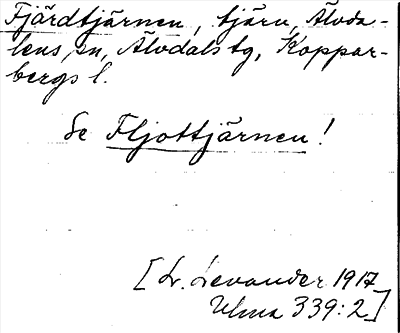 Fjärdtjärnen, tjärn, Älvda-
lens sn, Älvdals tg, Koppar-
bergs l.
Se Fljottjärnen!
[Lr. Levander 1917
Ulma 339:2]